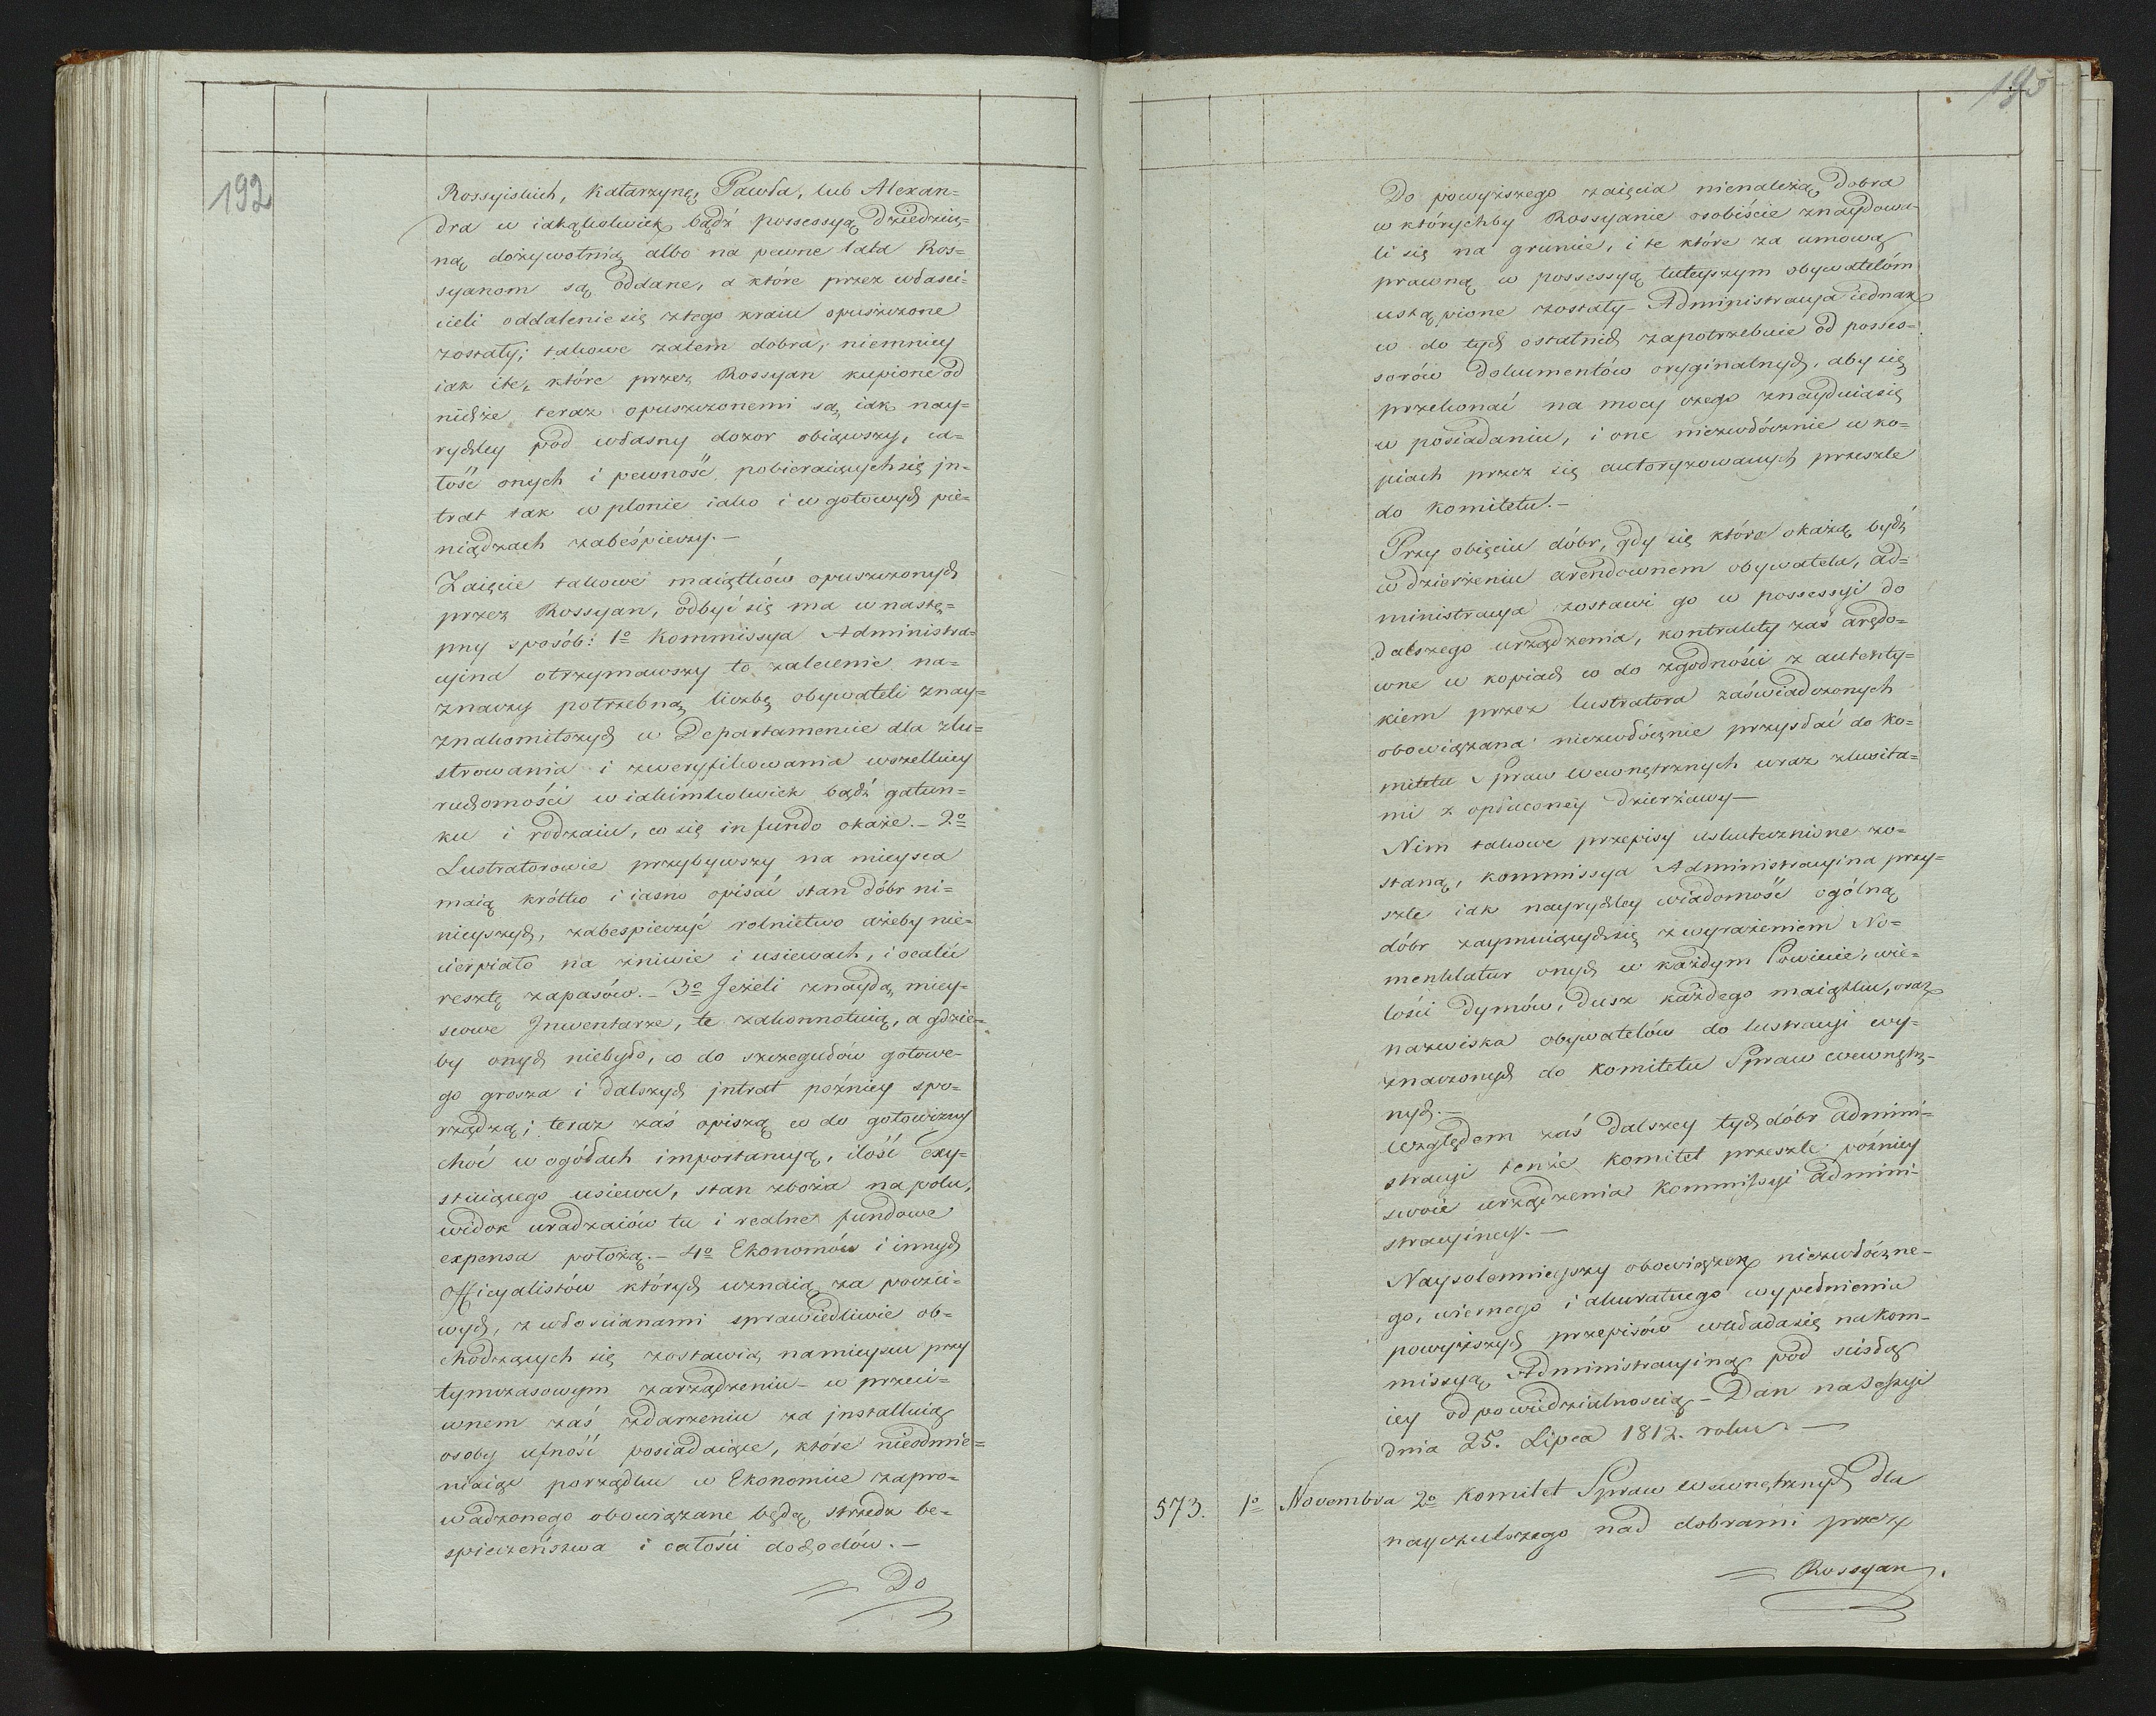 192
Rossyiskich, Katarzynę, Pawła, lub Alexan=
dra w iakąkolwiek bądź possessyą dziedzicz=
ną dożywotnią albo na pewne lata Ros=
syanom są oddane, a które przez właści=
cieli oddalenie się z tego kraiu opuszczone
zostały; takowe zatem dobra, niemniey
iak i te, które przez Rossyan kupione od
nichże teraz opuszczonemi są, iak nay=
rychley pod własny dozor obiąwszy, ca=
łość onych i pewność pobieraiących się in=
trat tak w plonie iako i w gotowych pie=
niądzach zabeśpieczy.—
Zaięcie takowe maiątków opuszczonych
przez Rossyan, odbyć się ma w nastę=
pny sposób: 1o Kommissya Administra=
cyina otrzymawszy to zalecenie na=
znaczy potrzebną liczbę obywateli znay=
znakomitszych w Departamencie dla zlu=
strowania i zweryfikowania wszelkiey
ruchomości w iakimkolwiek bądź gatun=
ku i rodzaiu, co się in fundo okaże.— 2o
Lustratorowie przybywszy na mieysca
maią krótko i iasno opisać stan dóbr ni=
nieyszych, zabespieczyć rolnictwo ażeby nie=
cierpiało na żniwie i usiewach, i ocalić
resztę zapasów.— 3o Jeżeli znaydą miey=
scowe Inwentarze, te zakonnotuią, a gdzie=
by onych niebyło, co do szczegułów gotowe=
go grosza i dalszych intrat poźniey spo=
rządzą; teraz zaś opiszą co do gotowizny
choć w ogółach importancyą, ilość exy=
stuiącego usiewu, stan zboża na polu,
widok uradzaiów tu i realne fundowe
expensa położą.— 4o Ekonomów i innych
Officyalistów których uznaią za poczci=
wych, z włoscianami sprawiedliwie ob=
chodzących się zostawią na mieyscu przy
tymczasowym zarządzeniu— w przeci=
wnem zaś zdarzeniu za installuią
osoby ufność posiadaiące, które nieodmie=
niaiąc porządku w Ekonomice zapro=
wadzonego obowiązane będą strzedz be=
spieczeństwa i całości dochodów.—
= Do
193
Do powyższego zaięcia nienależą dobra
w którychby Rossyanie osobiście znaydowa=
li się na gruncie, i te które za umową
prawną w possessyą tuteyszym obywatelóm
ustąpione zostały— Administracya iednak
co do tych ostatnich zapotrzebuie od posses=
sorów dokumentów oryginalnych, aby się
przekonać na mocy czego znayduią się
w posiadaniu, i one niezwłócznie w ko=
piach przez się autoryzowanych przeszle
do Komitetu.—
Przy obięciu dóbr, gdy się które okażą bydź
w dzierżeniu arendownem obywatela, ad=
ministracya zostawi go w possessyi do
dalszego urządzenia, kontrakty zaś arędo=
wne w kopiach co do zgodności z autenty=
kiem przez lustratora zaświadczonych
obowiązana niezwłócznie przysłać do Ko=
mitetu Spraw Wewnętrznych wraz z kwita=
mi z opłaconey dzierżawy—
Nim takowe przepisy uskutecznione zo=
staną, kommissya Administracyina przy=
szle iak nayrychley wiadomość ogólną
dóbr zaymuiących się z wyrażeniem No=
menklatur onych w każdym Powiecie, wie=
lości dymów, dusz każdego maiątku, oraz
nazwiska obywatelów do lustracyi wy=
znaczonych do Komitetu Spraw wewnętrz=
nych.—
Względem zaś dalszey tych dóbr admini=
stracyi tenże Komitet przeszle poźniey
swoie urządzenia Kommissyi Admini=
stracyiney.—
Naysolennieyszy obowiązek niezwłóczne=
go, wiernego i akuratnego wypełnienia
powyższych przepisów wkłada się na Kom=
missyą Administracyiną pod ścisłą
iey odpowiedzialnością— Dan na Sessyi
dnia 25. Lipca 1812. roku.—
573. 1o Novembra 2o Komitet Spraw wewnętrznych dla
nayczulszego nad dobrami przez
= Rossyan.